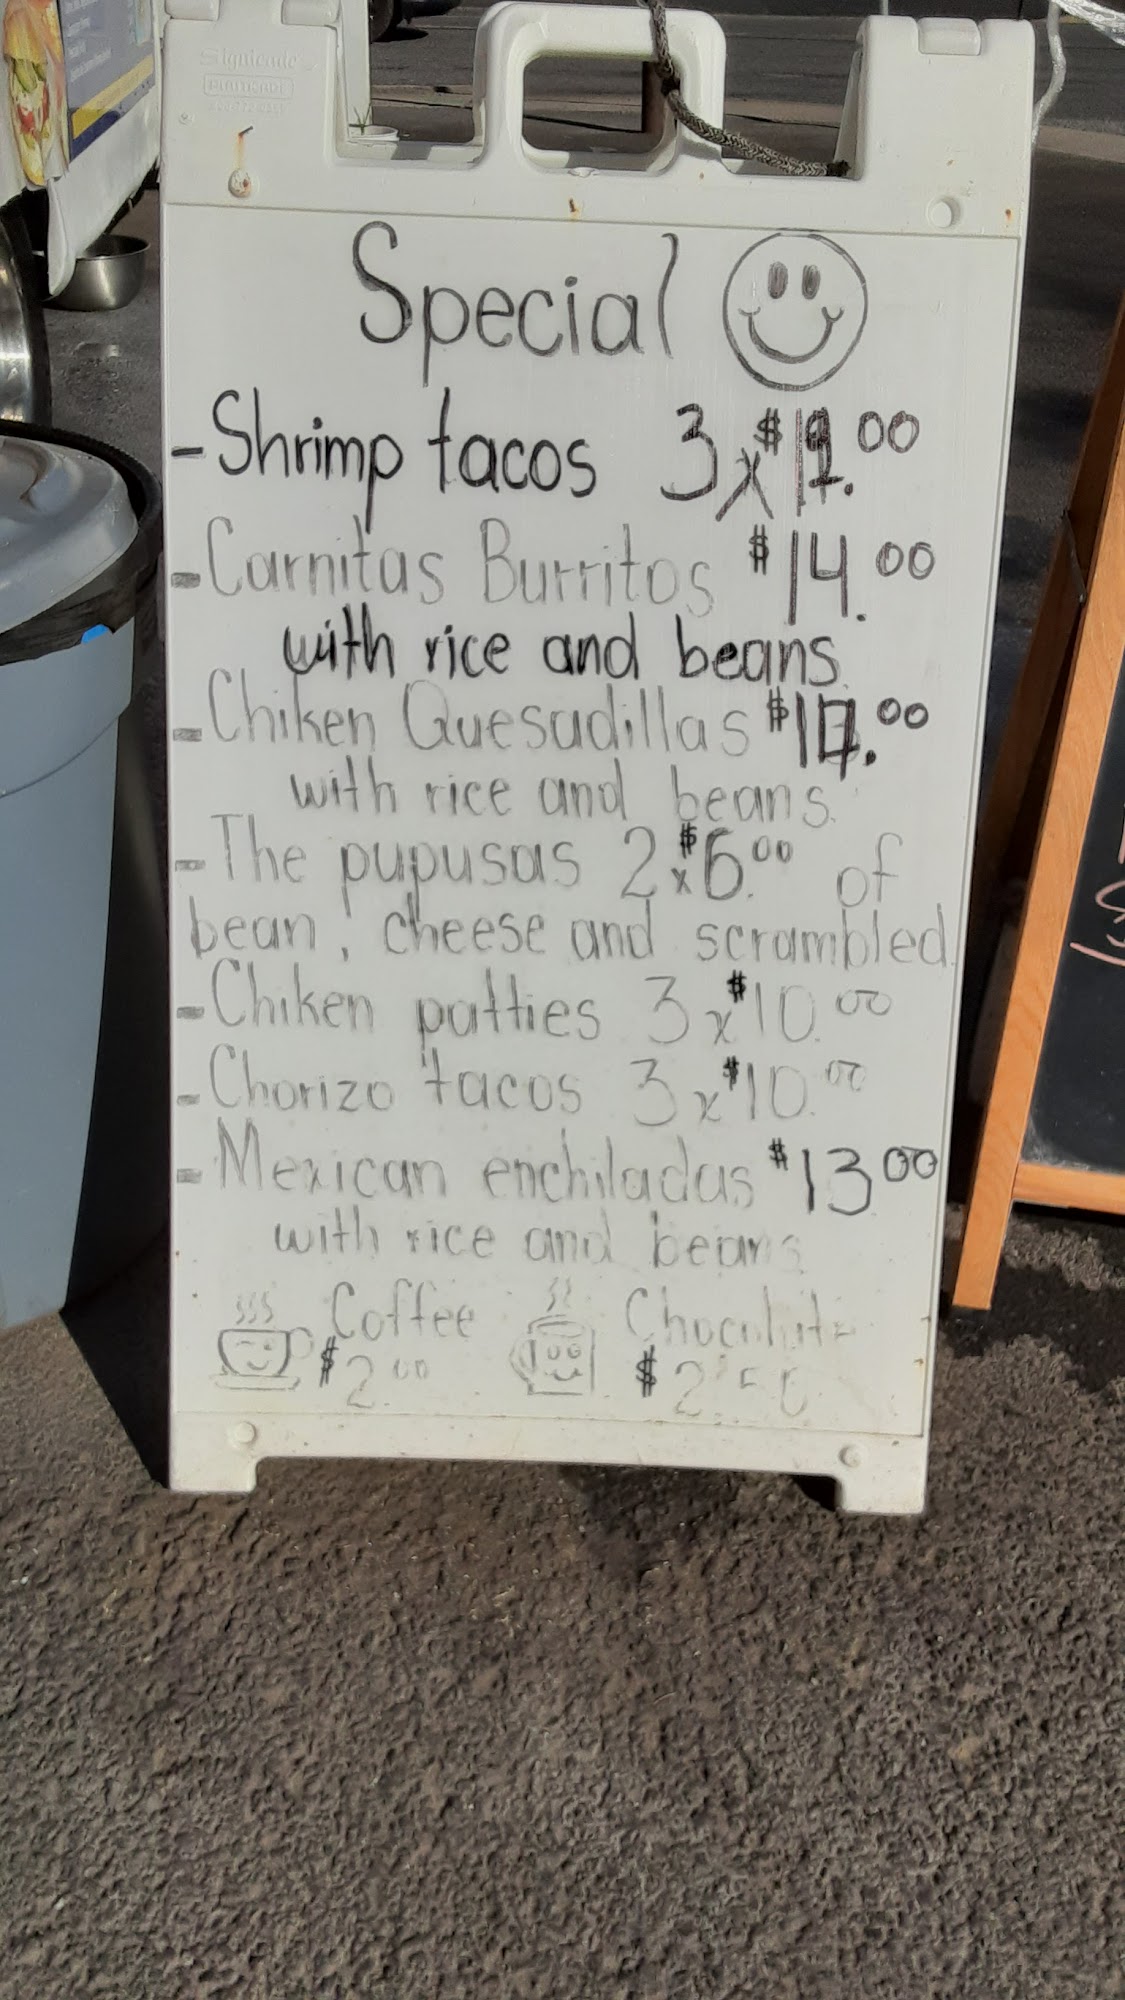 Signicade
Special
- Shrimp tacos 3 x $12.00
- Carnitas Burritos $14.00
with rice and beans.
- Chiken Quesadillas $ .00
with rice and beans.
- The pupusas 2 x $6.00 of
bean, cheese and scrambled.
- Chiken patties 3 x $10.00
- Chorizo tacos 3 x $10.00
- Mexican enchiladas $13.00
with rice and beans
Coffee Chocolate
$2.00 $2.50